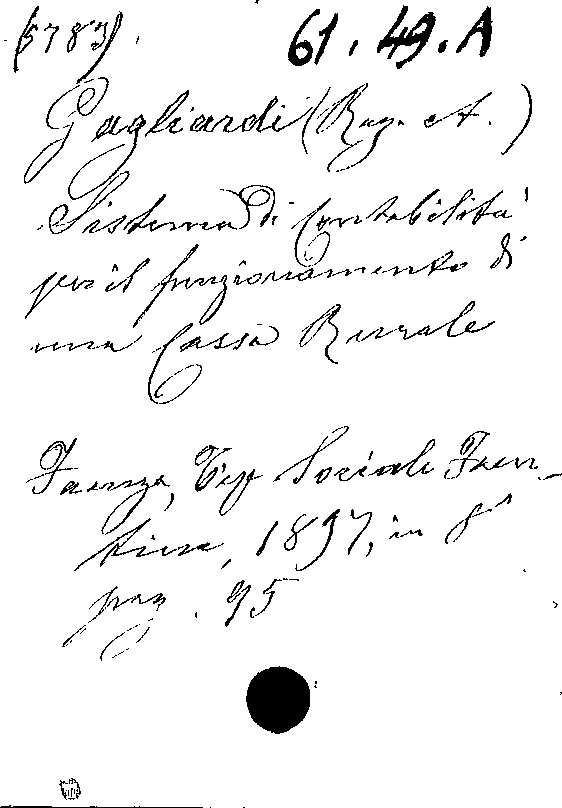 (5783). 61.49.A
Gagliardi (Rag. A.)
Sistema di contabilità
per il funzionamento di
una Cassa Rurale
Faenza, Tip. Sociale Faen-
tina, 1897, in 8°
pag. 95